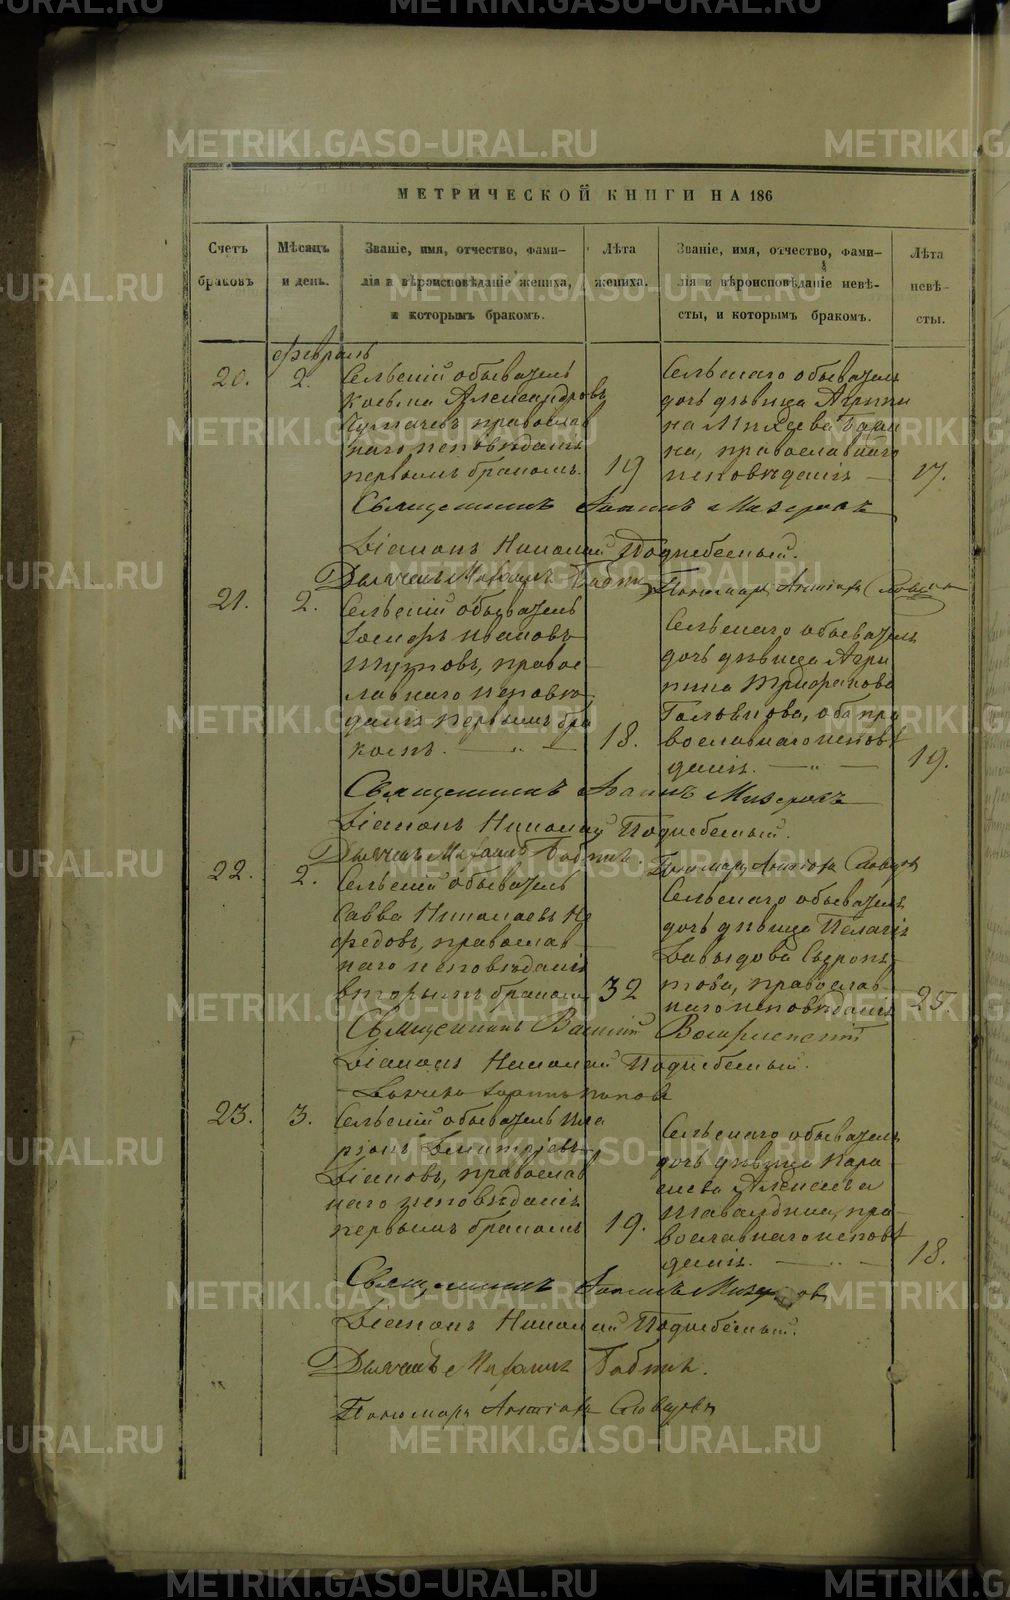 МЕТРИЧЕСКОЙ КНИГИ НА 186
Счетъ браковъ
Мѣсяцъ и день.
Званіе, имя, отчество, фами-
лія и вѣроисповѣданіе жениха,
и которымъ бракомъ.
Лѣта жениха.
Званіе, имя, отчество, фами-
лія и вѣроисповѣданіе невѣ-
сты, и которымъ бракомъ.
Лѣта невѣ-
сты.
Февраль
20.
2.
Сельскій обыватель
Косьма Александровъ
православ
наго исповѣданія
первымъ бракомъ.
19
Сельскаго обывателя
дочь дѣвица Агрипи
на
на, православнаго
исповѣданія —
17.
Священникъ Іоаннъ Мизеровъ
Діаконъ Николай Поднебесный.
Дьячекъ Михаилъ Бабинъ
Пономарь Словцовъ
21.
2.
Сельскій обыватель
Іосифъ Ивановъ
правос
лавнаго исповѣ
данія первымъ бра
комъ. — „ —
18.
Сельскаго обывателя
дочь дѣвица Агри
пина Трифонова
Головкова, оба пра
вославнаго исповѣ
данія. — „ —
19.
Священникъ Іоаннъ Мизеровъ
Діаконъ Николай Поднебесный.
Дьячекъ Михаилъ Бабинъ.
Пономарь Словцовъ
22.
2.
Сельскій обыватель
Савва Николаевъ Не
федовъ, православ
наго исповѣданія
вторымъ бракомъ
32
Сельскаго обывателя
дочь дѣвица Пелагія
Давыдова
това, православ
наго исповѣданія
25.
Священникъ Василій Воскресенскій
Діаконъ Николай Поднебесный.
Поповъ
23.
3.
Сельскій обыватель Ила
ріонъ Димитріевъ
православ
наго исповѣданія
первымъ бракомъ
19.
Сельскаго обывателя
дочь дѣвица Пара
скева Алексѣева
пра
вославнаго исповѣ
данія. —
18.
Священникъ Іоаннъ Мизеровъ
Діаконъ Николай Поднебесный.
Дьячекъ Михаилъ Бабинъ.
Пономарь Словцовъ
METRIKI.GASO-URAL.RU